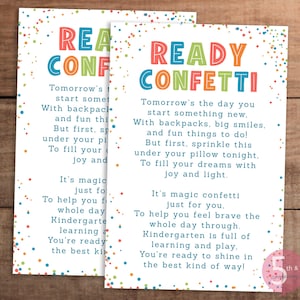 READY
CONFETTI
Tomorrow's the day you
start something new,
With backpacks, big smiles,
and fun things to do!
But first, sprinkle this
under your pillow tonight,
To fill your dreams with
joy and light.
It's magic confetti
just for you,
To help you feel brave the
whole day through.
Kindergarten is full of
learning and play,
You're ready to shine in
the best kind of way!
REA
CON
Tomorrow's
start some
With backpack
and fun thin
But first, s
under your pi
To fill your
joy an
It's magic
just fo
To help you fe
whole day
Kindergarte
learning
You're ready
the best kin